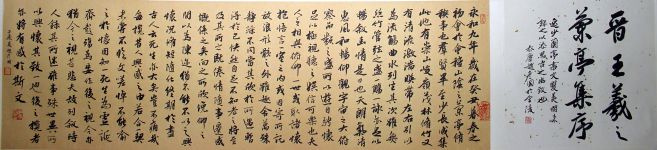 晋王羲之
蘭亭集序
永和九年歲在癸丑暮春之
初會于會稽山陰之蘭亭脩
禊事也群賢畢至少長咸集
此地有崇山峻領茂林脩竹又
有清流激湍暎帶左右引以
為流觴曲水列坐其次雖無
絲竹管弦之盛一觴一詠亦足以
暢敘幽情是日也天朗氣清
惠風和暢仰觀宇宙之大俯
察品類之盛所以遊目騁懷
足以極視聽之娛信可樂也夫
人之相與俯仰一世或取諸懷
抱悟言一室之內或因寄所託
放浪形骸之外雖趣舍萬殊
靜躁不同當其欣於所遇暫
得於己快然自足不知老之將至
及其所之既倦情隨事遷感
慨係之矣向之所欣俛仰之
間以為陳跡猶不能不以之興
懷況脩短隨化終期於盡
古人云死生亦大矣豈不痛哉
每攬昔人興感之由若合一契
未嘗不臨文嗟悼不能喻
之於懷固知一死生為虛誕
齊彭殤為妄作後之視今亦
猶今之視昔悲夫故列敘時
人錄其所述雖世殊事異所
以興懷其致一也後之攬者
亦將有感於斯文